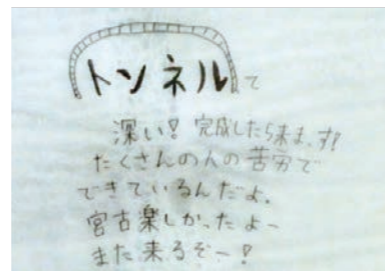 トンネルて
深い!完成したら来ます!
たくさんの人の苦労で
できているんだよ。
宮古楽しかったよー
また来るぞー!